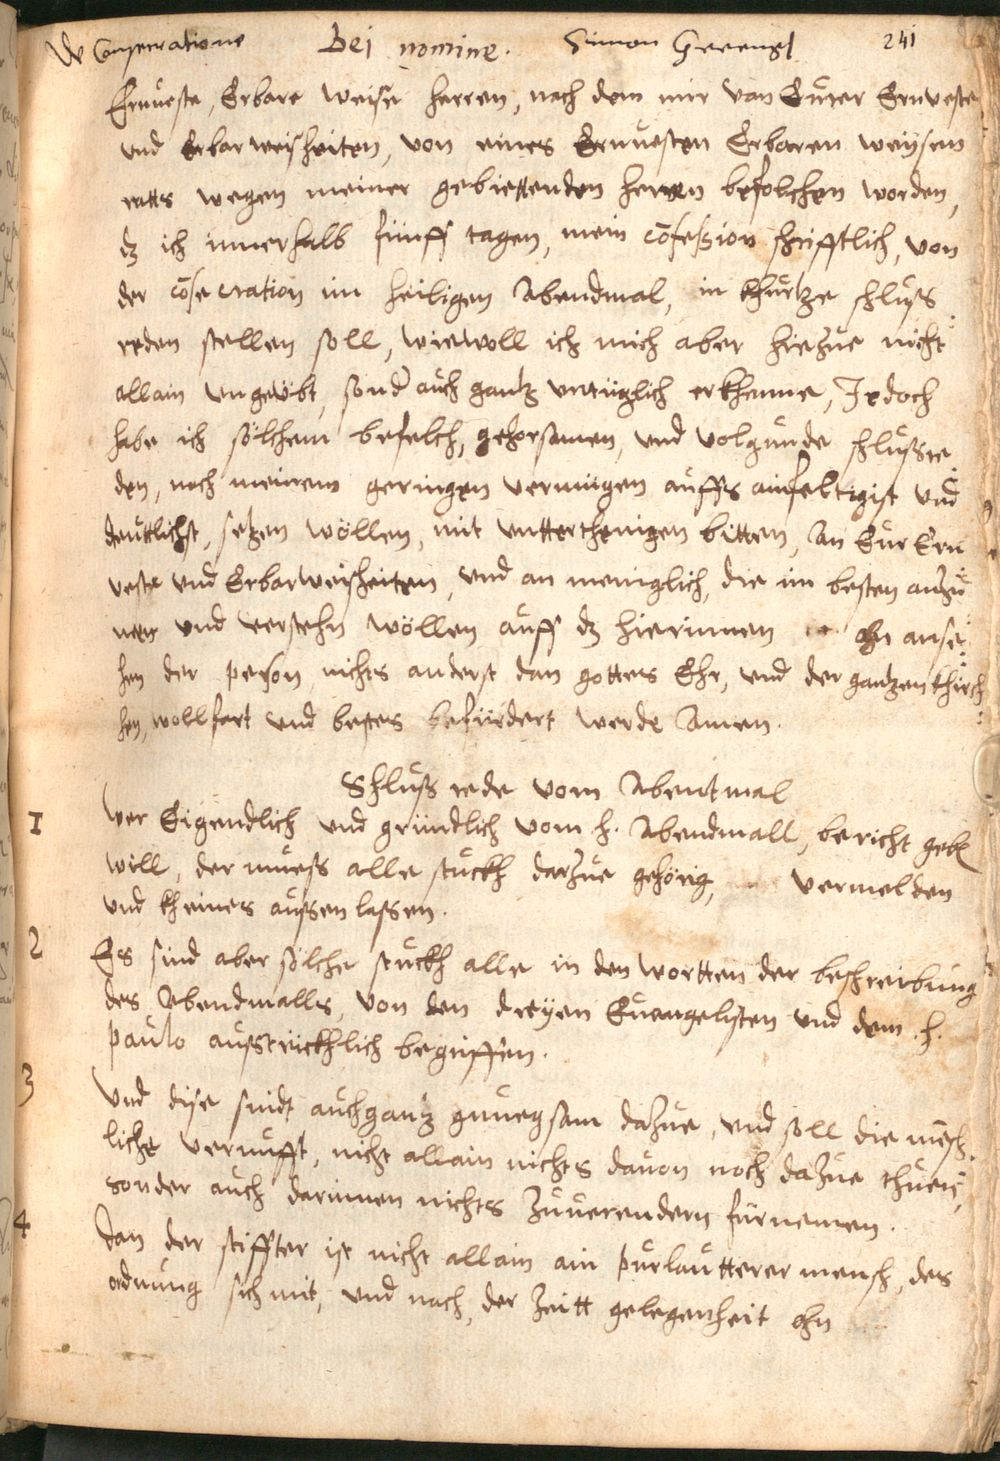 De Consecratione Dei nomine. Simon 241
Ernueste, Erbare weise herren, nach dem mir von Eurer Ernueste
und Erbar weisheiten, von eines Ernuesten Erbaren weysen
ratts wegen meiner gebiettenden herren befolchen worden,
dz ich innerhalb fünff tagen, mein cōfession schrifftlich, von
der cōsecration im heiligen Abendmal, in khürtze schluss
reden stellen soll, wiewoll ich mich aber hiezue nicht
allain ungeübt, sond auch gantz untüglich erkhenne, Jedoch
habe ich sölchem befelch, gehorsamen, und volgunde schlussre
den, nach meinem geringen vermügen auffs ainfeltigist und
deuttlichst, setzen wöllen, mit untterthenigen bitten, an Eur Ern
veste und Erbarweisheiten, und an meniglich, die im besten anzu
nen und verstehn wöllen auff dz hierinnen ohn anse
hen der person nichts anderst dan gottes Ehr, und der gantzen khirch
hen, wollfart und bestes befürdert werde Amen.
Schluss rede vom Abentmal
1 Wer Eigendlich und gründlich vom h. Abendmall, bericht geben
will, der muess alle stuckh darzue gehörig, vermelden
und kheines aussen lassen.
2 Es sind aber sölche stuckh alle in den wortten der beschreibung
des Abendmalls, von den dreyen Euangelisten und dem h.
paulo ausstrückhlich begriffen.
3 Und dise sindt auch gantz gnuegsam dazue, und soll die mēsch
liche vernufft, nicht allain nichts davon noch dazue thuen,
sonder auch darinnen nichts zuuerendern fürnemen.
4 Dan der stiffter ist nicht allain ain purlautterer mensch, des
ordnung sich mit, und nach, der zeitt gelegenheit ohn